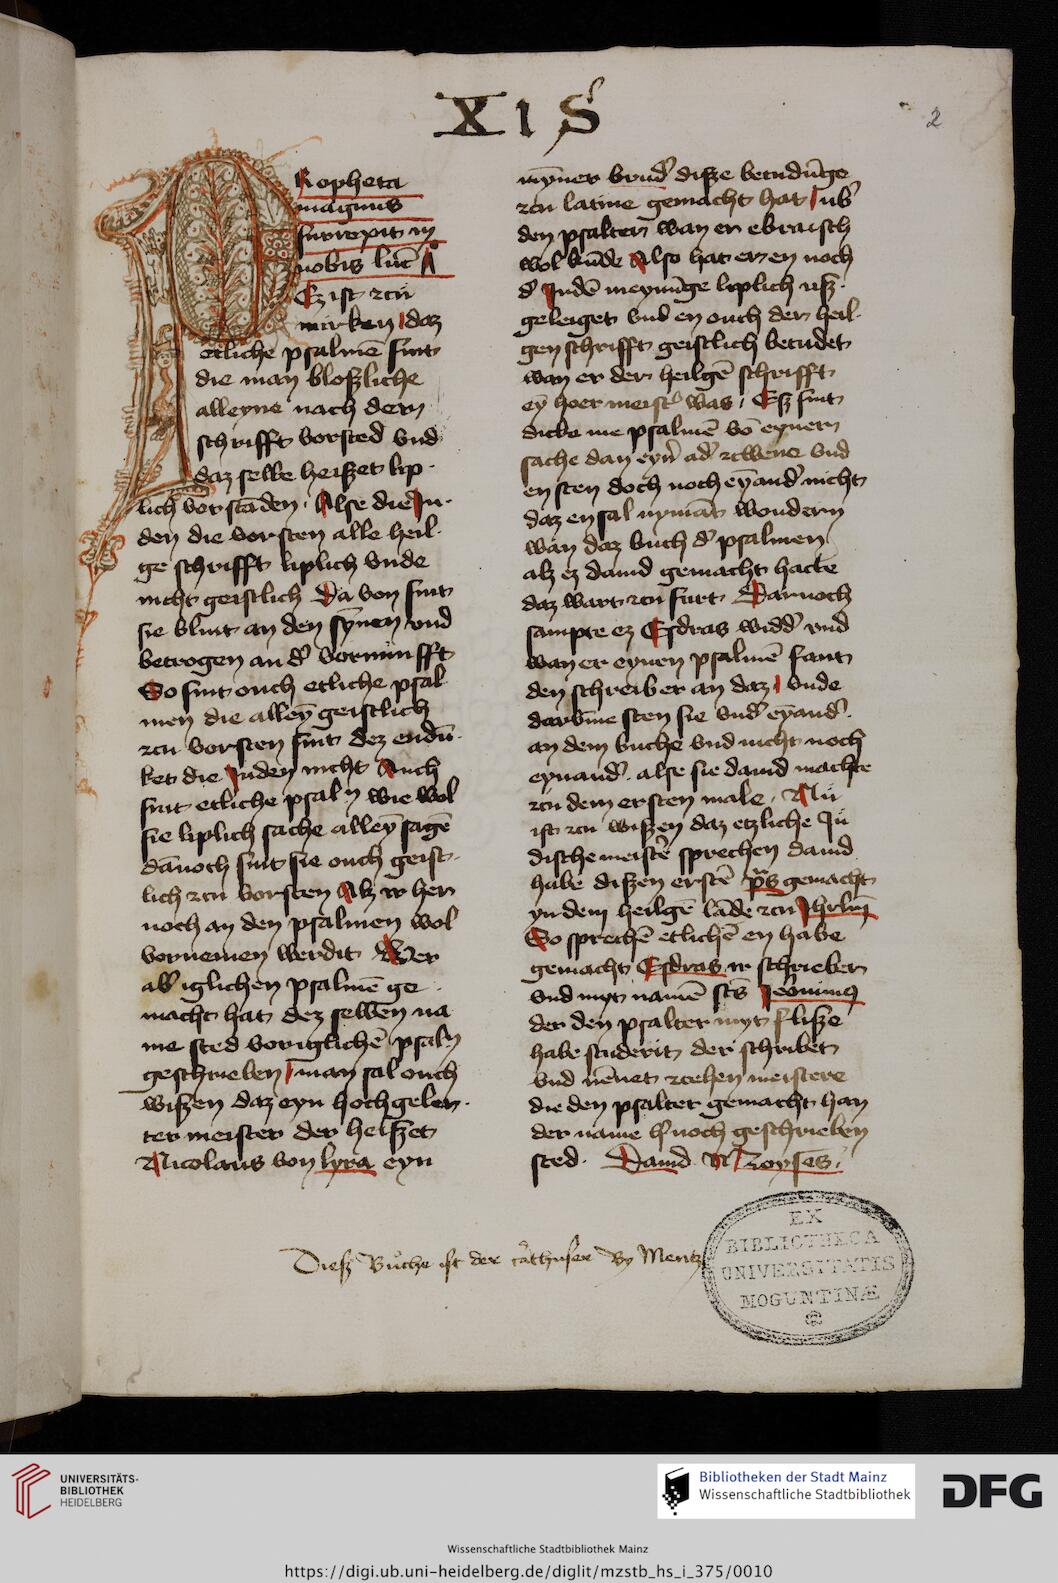 XIS
2
Propheta
magnus
surrexit in
nobis luc̄ ⁊
Ez ist zcu
mirken daz
etliche psalmē sint
die man bloszliche
alleyne nach dem
schrifft vorsted vnd
daz selbe heiszet lip-
lich vorstāden. Alse die Ju-
den die vorsten alle heil-
ge schrifft liplich vnde
nicht geistlich Da von sint
sie blint an den synnen vnd
betrogen an d' vornunfft
So sint ouch etliche psal
men die alleȳ geistlich
zcu vorsten sint dez endū-
ket die Juden nicht Auch
sint etliche psalm wie wol
sie liplich sache alleȳ sagē
dānoch sint sie ouch geist-
lich zcu vorsten Alz ir her
noch an den psalmen wol
vornemen werdit Wer
ab' iglichen psalmē ge
macht hat dez selben na
me sted vor iglichē psalm
geschrieben man sal ouch
wiszen daz eyn hochgeler-
ter meister der heiszet
Nicolaus von lyra eyn
mynner brud' disze betudūge
zcu latine gemacht hat ub'
den psalter wan er ebraisch
wol kūde Also hat er en noch
d' Judē meynūge liplich usz-
geleiget vnd en ouch der heil-
gen schrifft geistlich betudet
wan er der heilgē schrifft
eȳ hoer meist' was. Esz sint
dicke me psalmē vō eynern
sache dan eyn̄ ad' zcwene vnd
en sten doch noch eȳand' nicht
daz en sal nymāt wondern
wan daz buch d' psalmen
alz ez dauid gemacht hatte
daz wart zcu furt Darnoch
sampte ez Esdras widd' vnd
wan er eynen psalmē fant
den schreib er an daz vnde
darvm̄e sten sie vnd' eȳand'
an dem buche vnd nicht noch
eynand'. alse sie dauid machte
zcu dem ersten male. Nu
ist zcu wiszen daz etzliche Ju
dische meistē sprechen dauid
habe diszen erstē ps gemacht
yn dem heilgē lāde zcu Jhrlm̄
So sprechē etlichē en habe
gemacht Esdras ir schrieber
vnd myt namē scs̄ Jeronimus
der den psalter myt flisze
habe studerit der schribet
vnd nēnet zcehen meistere
die den psalter gemacht han
der name h' noch geschrieben
sted. Dauid Moyses.
Diesz Buche ist der carthuser By Mentz
EX
BIBLIOTHECA
UNIVERSITATIS
MOGUNTINÆ
UNIVERSITÄTS-
BIBLIOTHEK
HEIDELBERG
Bibliotheken der Stadt Mainz
Wissenschaftliche Stadtbibliothek
DFG
Wissenschaftliche Stadtbibliothek Mainz
https://digi.ub.uni-heidelberg.de/diglit/mzstb_hs_i_375/0010